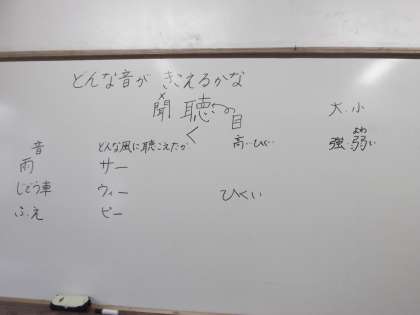 どんな音が きこえるかな
聞 聴 大・小
く 目
音 どんな風に聴こえたか 高い・ひくい 強・弱い
よわ
雨 サー
じどう車 ウィー ひくい
ふえ ピー